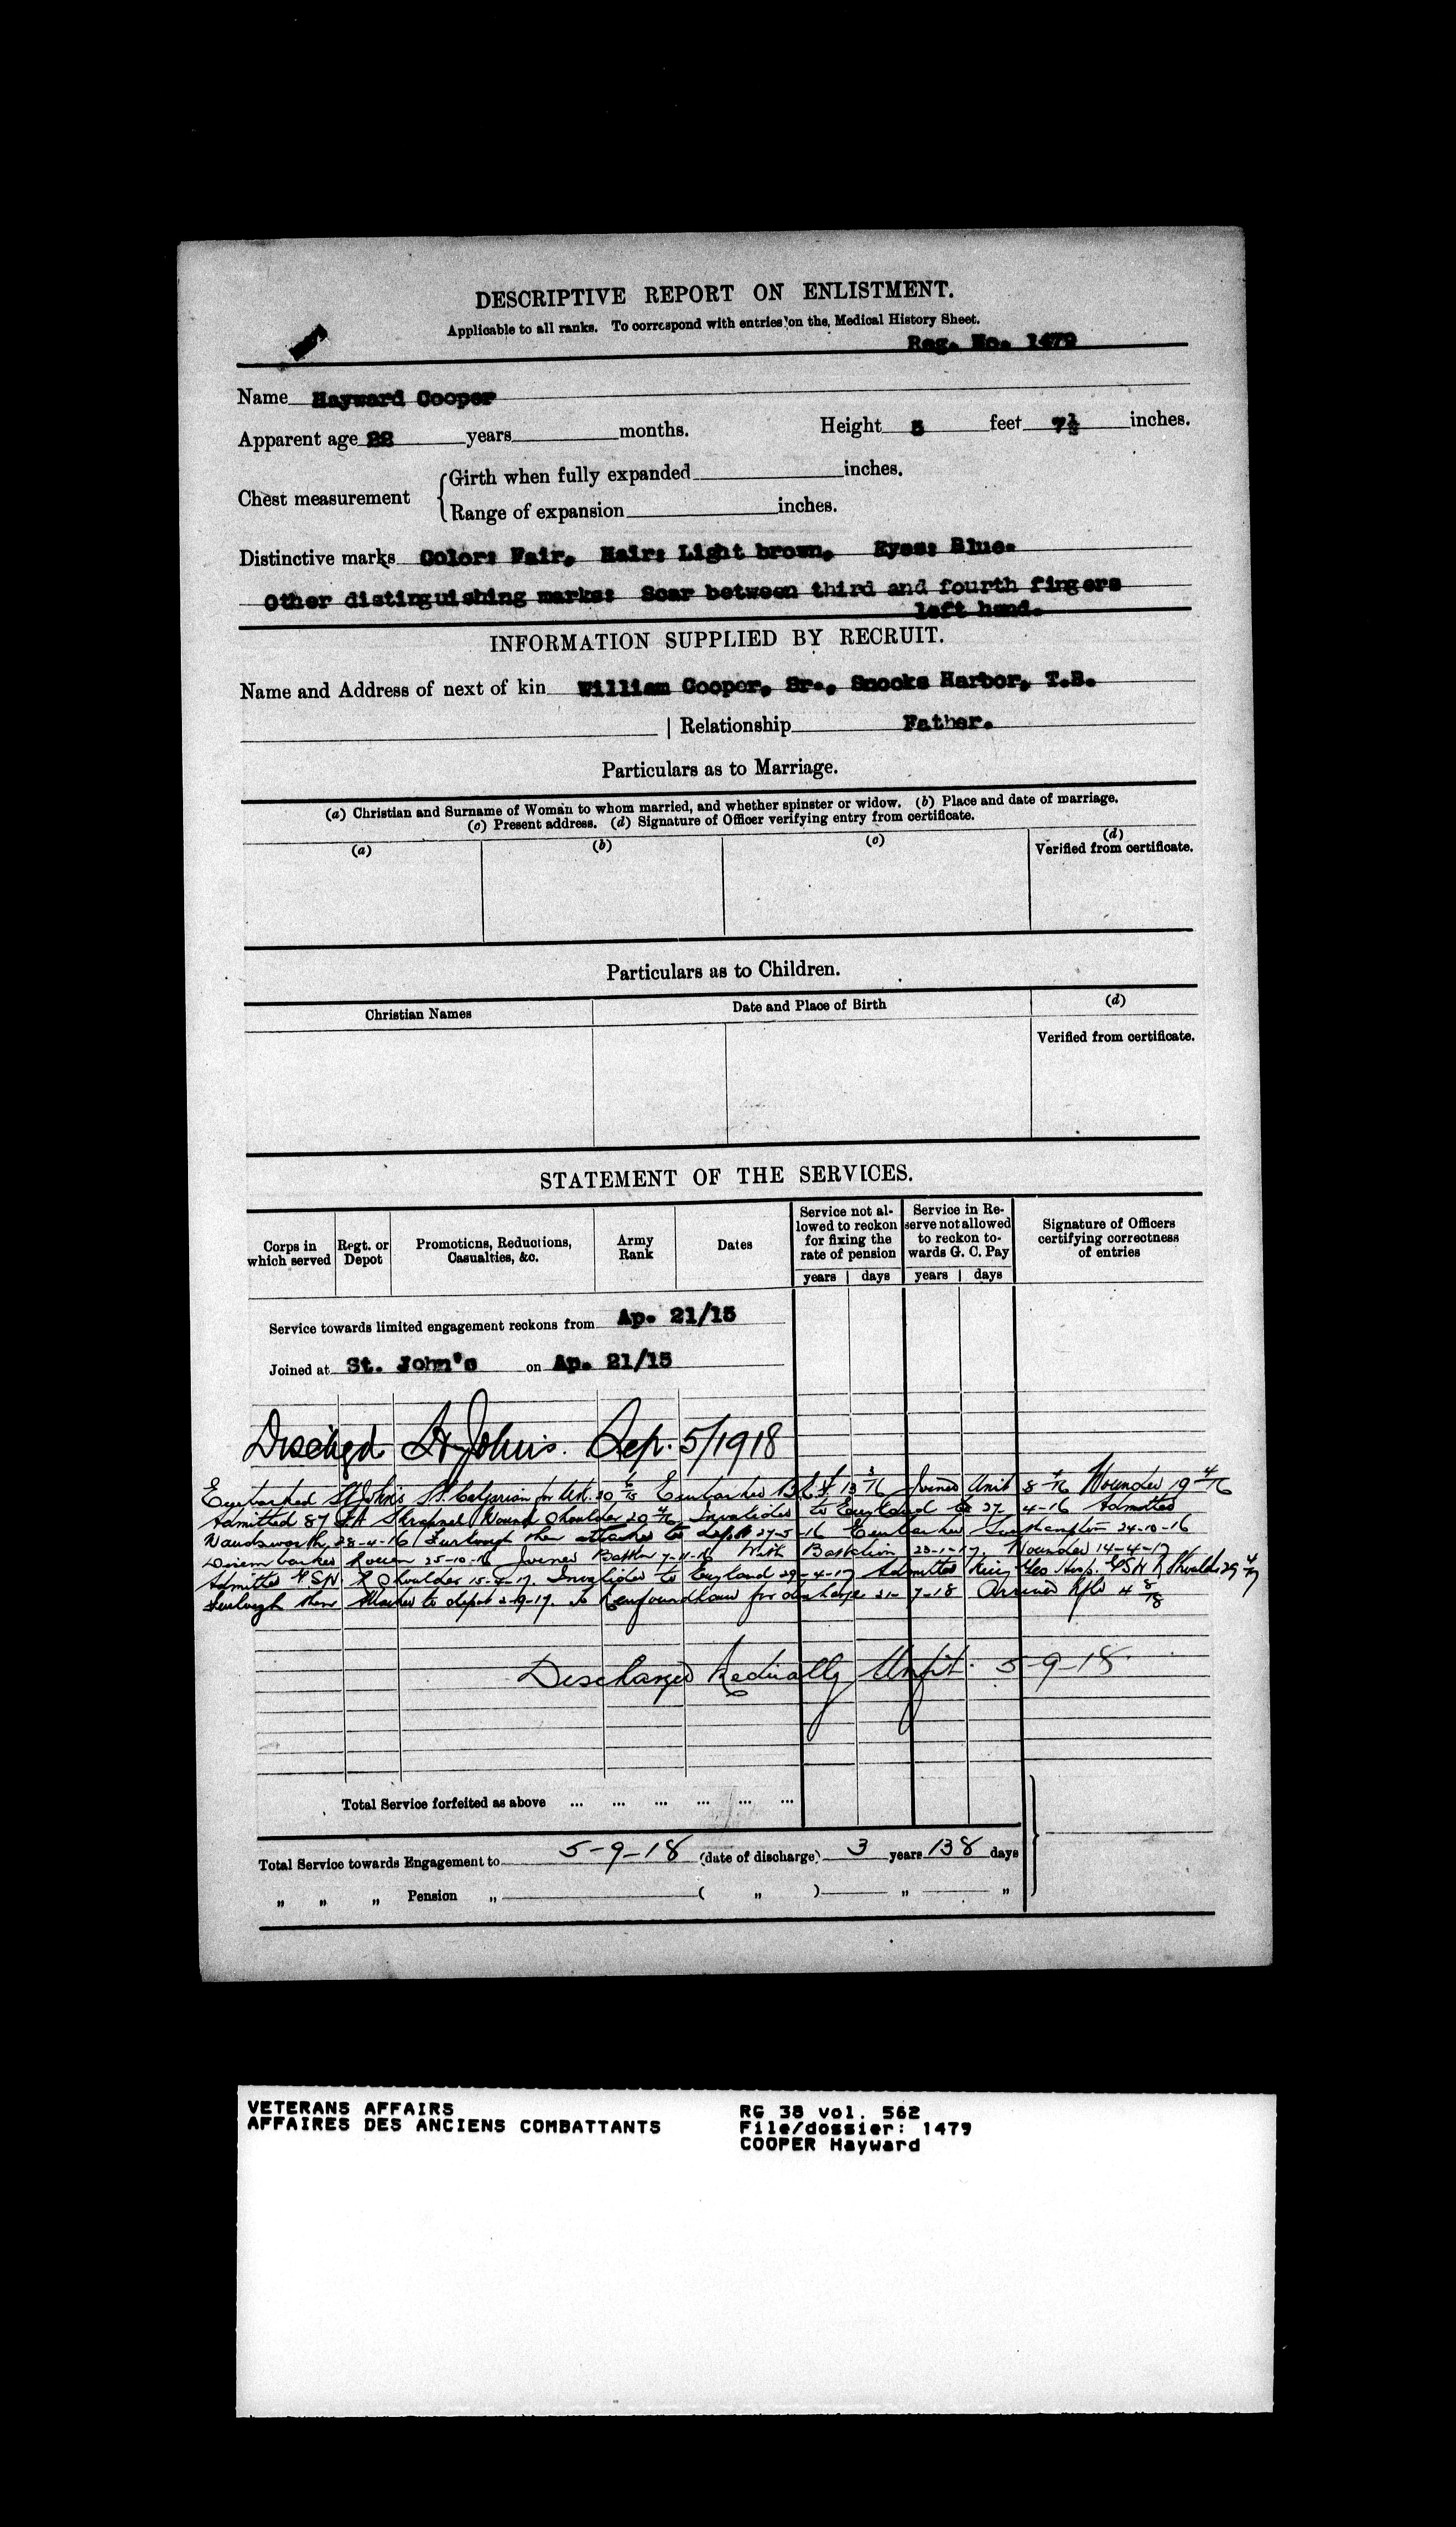 DESCRIPTIVE REPORT ON ENLISTMENT.
Applicable to all ranks. To correspond with entries on the Medical History Sheet.
Reg. No. 1479
Name Hayward Cooper
Apparent age 22 years months. Height 5 feet 7½ inches.
Chest measurement
Girth when fully expanded inches.
Range of expansion inches.
Distinctive marks Color: Fair, Hair: Light brown, Eyes: Blue.
Other distinguishing marks: Scar between third and fourth fingers
left hand.
INFORMATION SUPPLIED BY RECRUIT.
Name and Address of next of kin William Cooper, Sr., Snooks Harbor, T.B.
| Relationship Father.
Particulars as to Marriage.
(a) Christian and Surname of Woman to whom married, and whether spinster or widow. (b) Place and date of marriage.
(c) Present address. (d) Signature of Officer verifying entry from certificate.
(a) (b) (c) (d)
Verified from certificate.
Particulars as to Children.
Christian Names Date and Place of Birth (d)
Verified from certificate.
STATEMENT OF THE SERVICES.
Corps in which served Regt. or Depot Promotions, Reductions, Casualties, &c. Army Rank Dates Service not allowed to reckon for fixing the rate of pension Service in Reserve not allowed to reckon towards G. C. Pay Signature of Officers certifying correctness of entries
years days years days
Service towards limited engagement reckons from Ap. 21/15
Joined at St. John's on Ap. 21/15
Dischgd St Johns. Sep. 5/1918
Embarked St Johns S.S. Calgarian for U.K. 20 6/15 Embarked B.E.F. 13 3/16 Joined Unit 8 4/16 Wounded 19 4/16
Admitted 87 F.A Shrapnel Wound Shoulder 20 4/16 Invalided to England 27-4-16 Admitted
Wandsworth 28-4-16 Furlough then attached to depot 27-5-16 Embarked Southampton 24-10-16
Disembarked Rouen 25-10-16 Joined Battn 7-11-16 With Battalion 23-1-17. Wounded 14-4-17
Admitted GSW. R Shoulder 15-4-17. Invalided to England 29-4-17 Admitted King Geo Hosp. GSW R Shoulder 29 4/17
Furlough then Attached to depot 2-9-17. To Newfoundland for discharge 21-7-18 Arrived Nfld 4 8/18
Discharged Medically Unfit. 5-9-18
Total Service forfeited as above ... ... ... ... ... ...
Total Service towards Engagement to 5-9-18 (date of discharge) 3 years 138 days
„ „ „ Pension „ ( „ ) „ „
VETERANS AFFAIRS
AFFAIRES DES ANCIENS COMBATTANTS
RG 38 vol. 562
File/dossier: 1479
COOPER Hayward